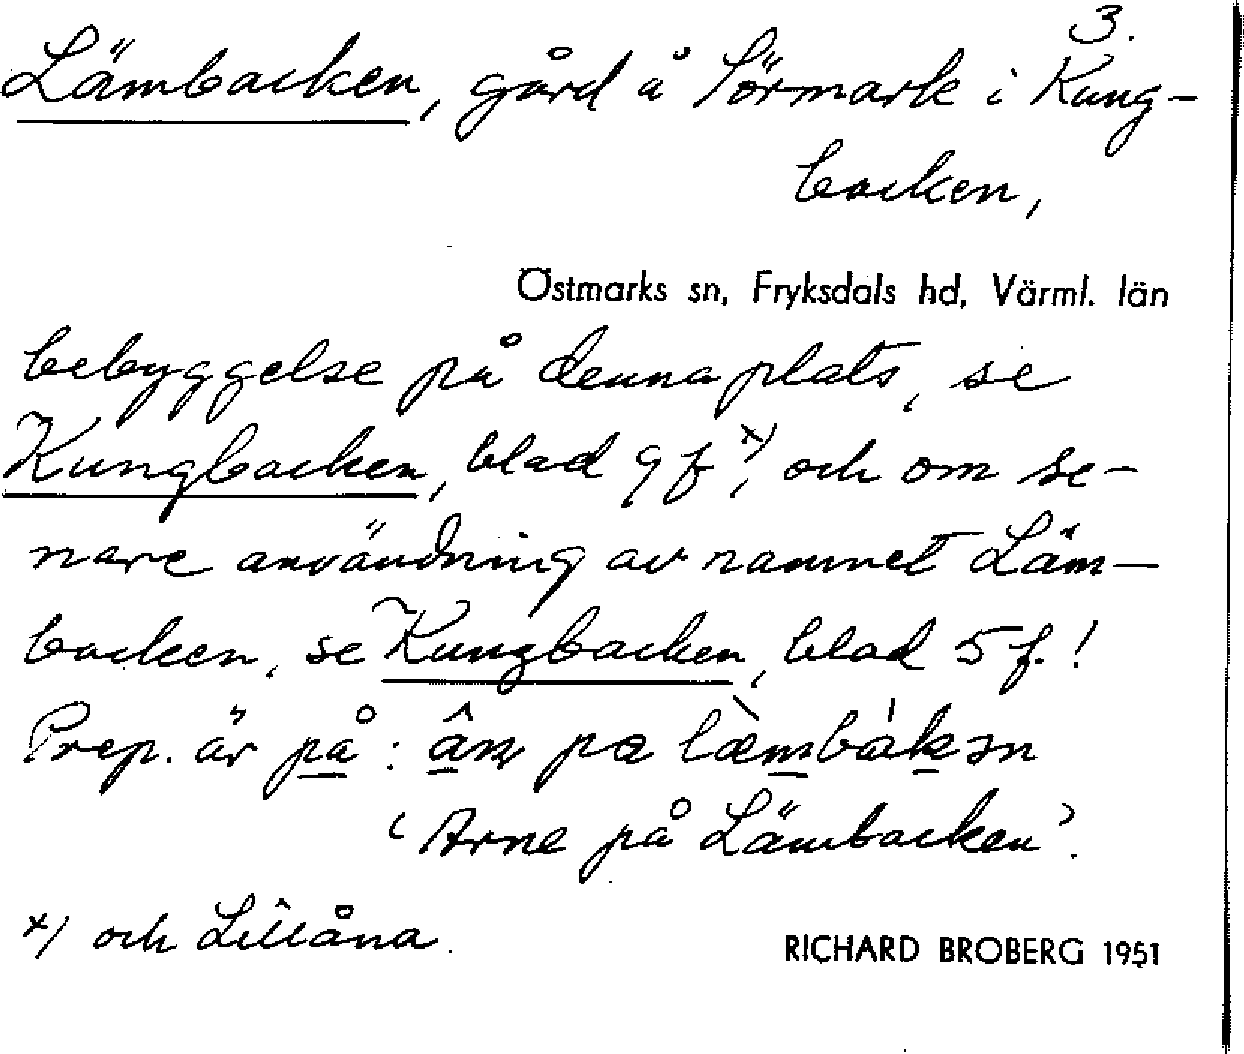 3.
Lämbacken, gård å Sörmark i Kung-
backen,
Östmarks sn, Fryksdals hd, Värml. län
bebyggelse på denna plats, se
Kungbacken, blad 9 f x), och om se-
nare användning av namnet Läm-
backen, se Kungbacken, blad 5 f. !
Prep. är på: pæ læmbakən
'Arne på Lämbacken'.
x) och Lillåna.
RICHARD BROBERG 1951